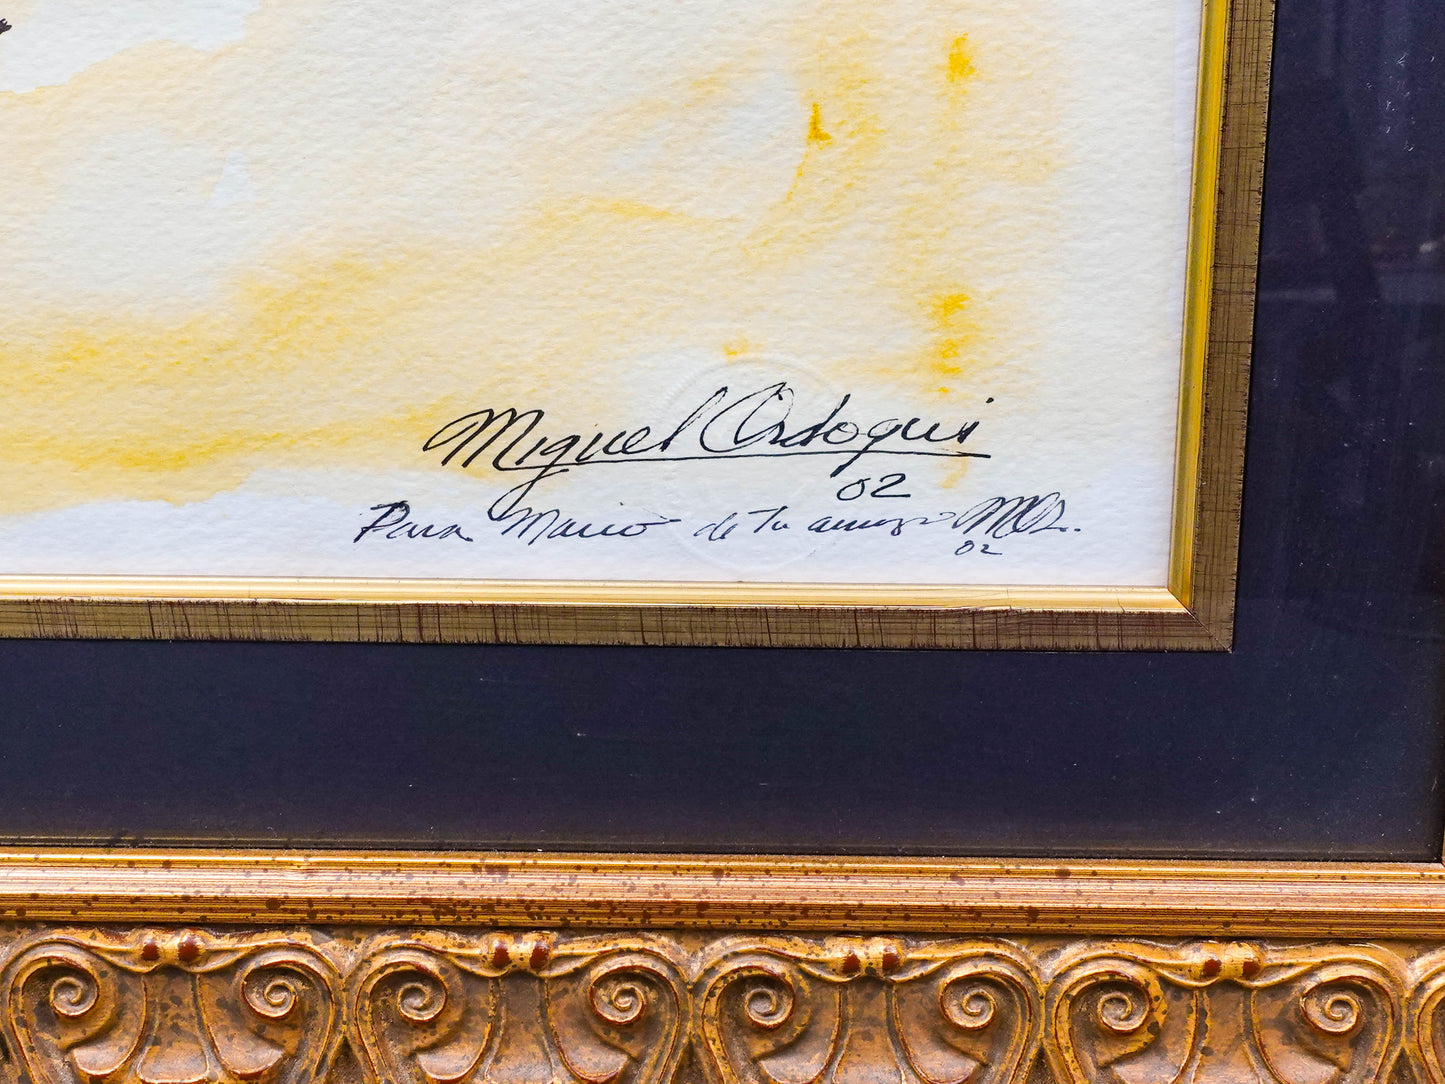 Miguel Ordoqui
02
Para Mario de Tu amigo MO.
02